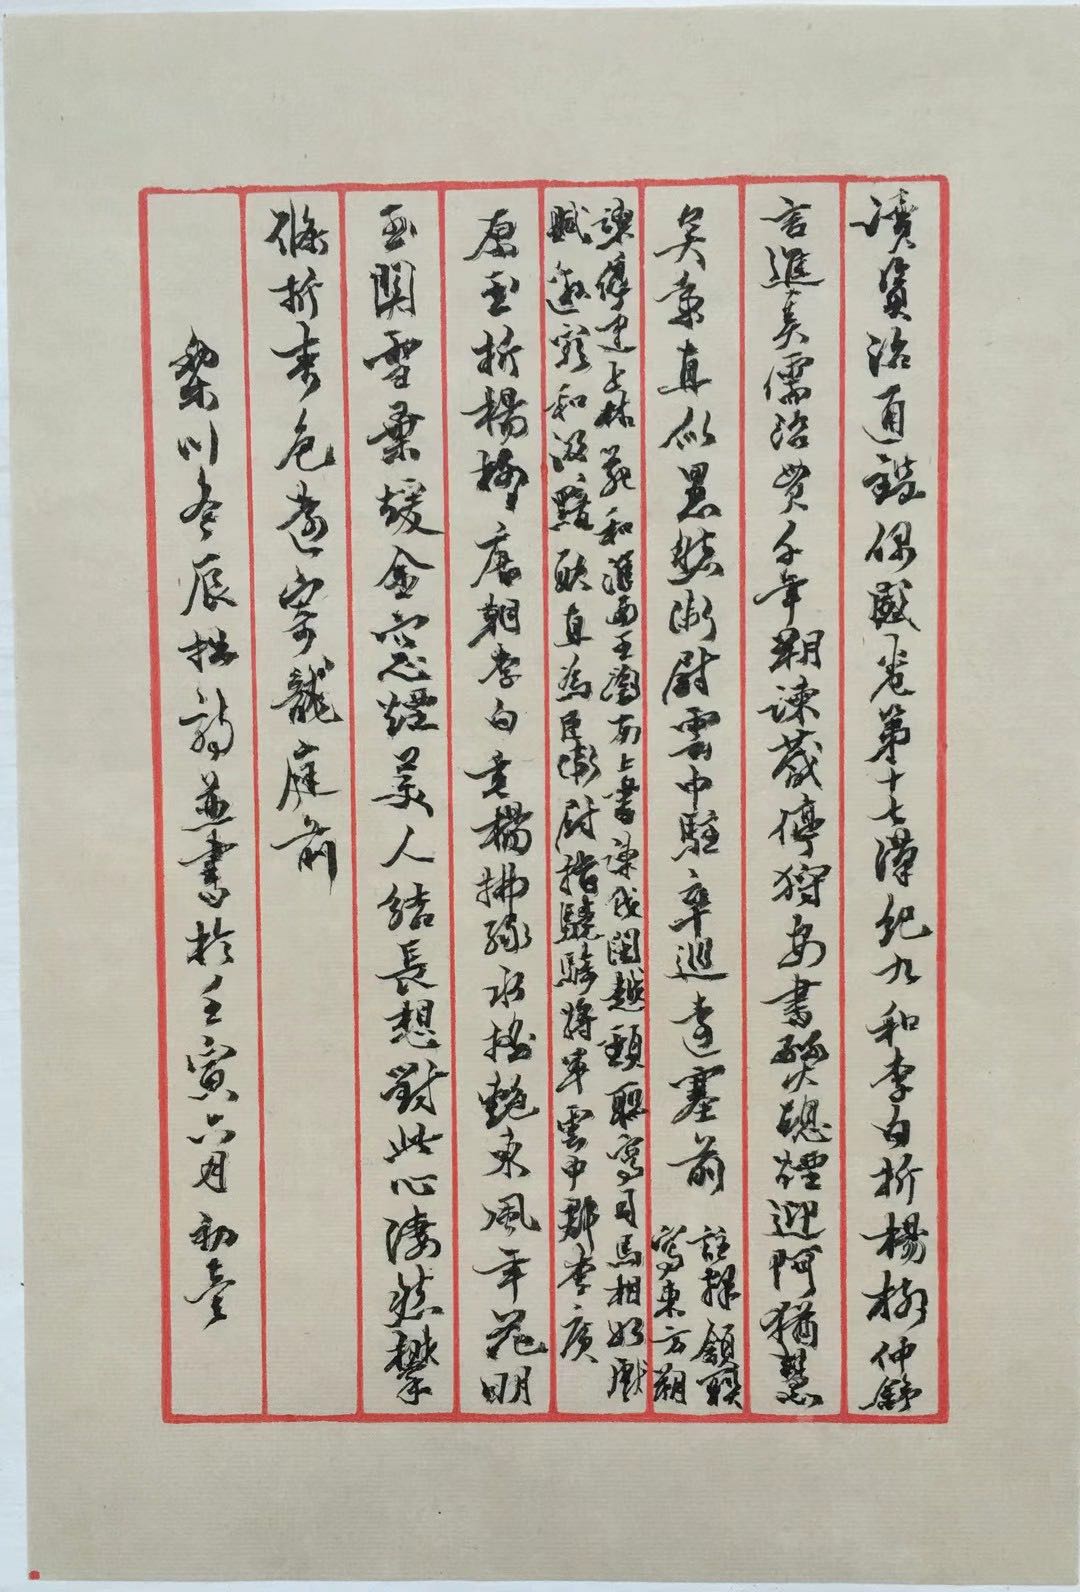 讀資治通鑑偶感卷第十七漢紀九和李白折楊柳仲舒
言進美儒治貫千年朔諫停狩安書熄煙迎阿猶慧
矣棄直似愚然衛尉雲中駐卒巡邊塞前
註頷聯
寫東方朔
諫停建上林苑和淮南王劉安上書諫伐閩越頸聯寫司馬相如獻
賦邀寵和汲黯耿直為臣衛尉指驍騎將軍雲中郡李廣
原玉折楊柳唐朝李白垂楊拂綠水搖艷東風年花明
玉關雪葉暖金窗煙美人結長想對此心淒然攀
條折春色遠寄龍庭前
川冬辰拙詩並書於壬寅六月初壹